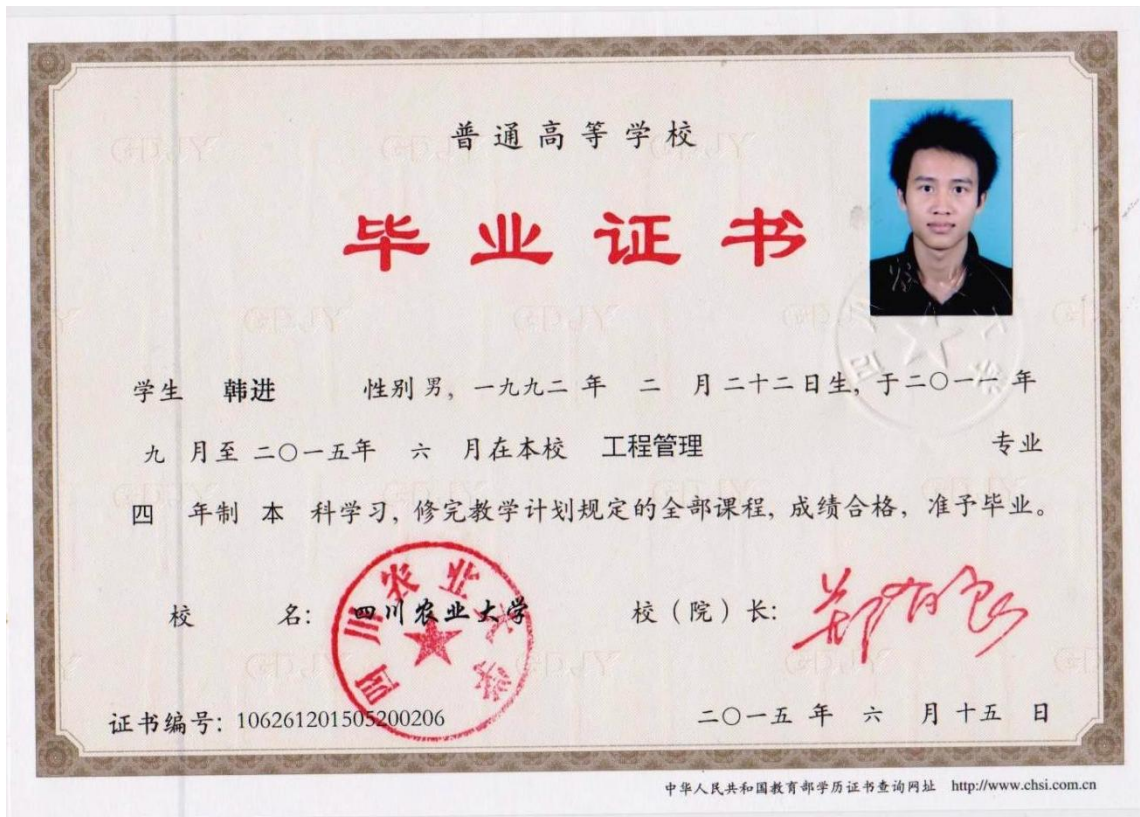 普通高等学校
毕业证书
学生 韩进 性别 男, 一九九二 年 二 月 二十二 日生, 于 二〇一一 年
九 月至 二〇一五年 六 月在本校 工程管理 专业
四 年制 本 科学习, 修完教学计划规定的全部课程, 成绩合格, 准予毕业。
校 名: 四川农业大学 校（院）长: 郑有良
四川农业大学
证书编号: 106261201505200206 二〇一五 年 六 月 十五 日
中华人民共和国教育部学历证书查询网址 http://www.chsi.com.cn